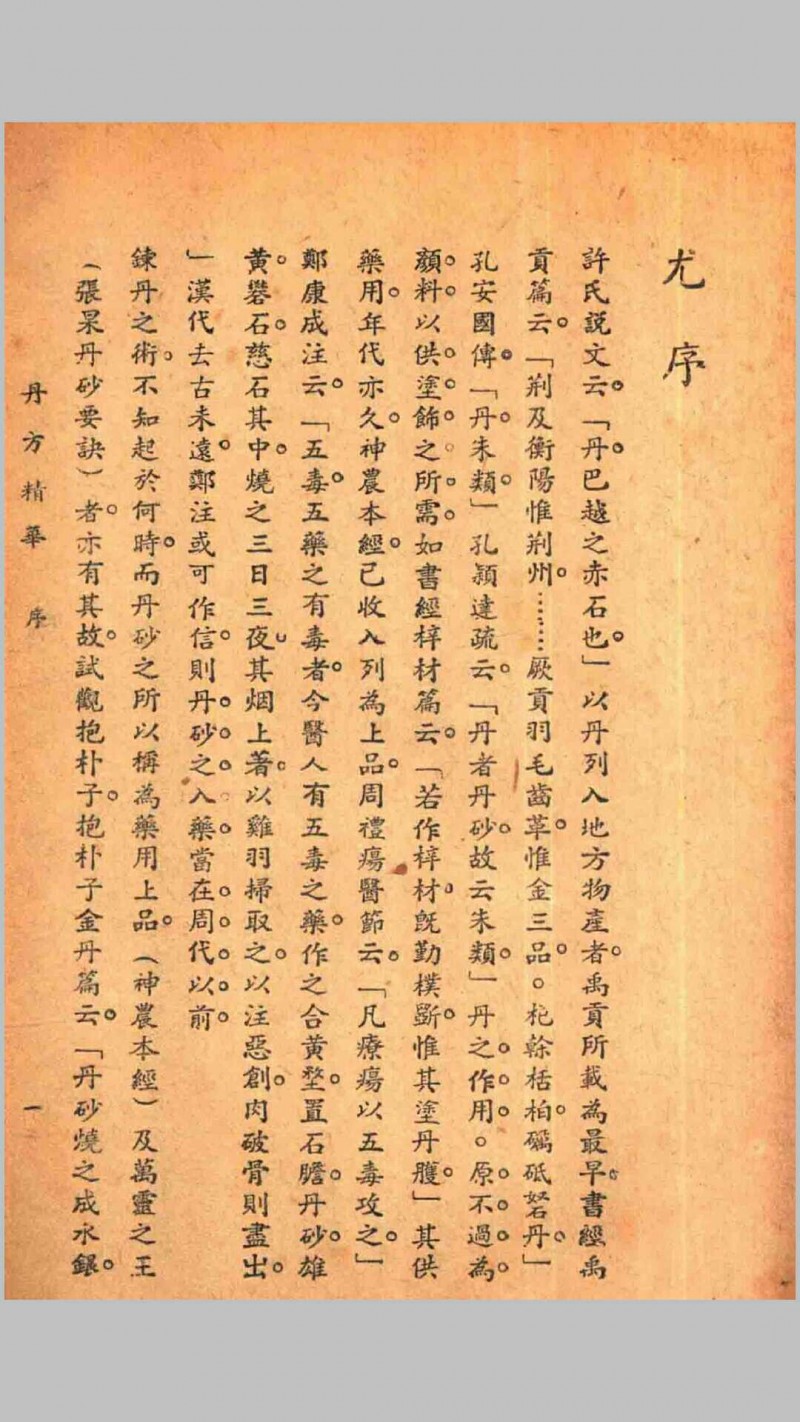 尤序
許氏説文云。「丹。巴越之赤石也。」以丹列入地方物產者。禹貢所載為最早。書經禹
貢篇云。「荆及衡陽惟荆州。……厥貢羽毛齒革。惟金三品。杶榦栝柏。礪砥砮丹。」
孔安國傳。「丹。朱類。」孔穎達疏云。「丹者丹砂。故云朱類。」丹之作用。原不過為
顏料以供塗飾之所需。如書經梓材篇云。「若作梓材。既勤樸斲。惟其塗丹雘。」其供
藥用。年代亦久。神農本經。已收入列為上品。周禮瘍醫節云。「凡療瘍以五毒攻之。」
鄭康成注云。「五毒。五藥之有毒者。今醫人有五毒之藥。作之合黃堥。置石膽。丹砂。雄
黃。礜石。慈石其中。燒之三日三夜。其烟上著。以雞羽掃取之。以注惡創。肉破骨則盡出。
」漢代去古未遠。鄭注或可作信。則丹砂之入藥。當在周代以前。
鍊丹之術。不知起於何時。而丹砂之所以稱為藥用上品。(神農本經)及萬靈之王
(張杲丹砂要訣)者。亦有其故。試觀抱朴子。抱朴子金丹篇云。「丹砂燒之成水銀。
丹方精華 序 一